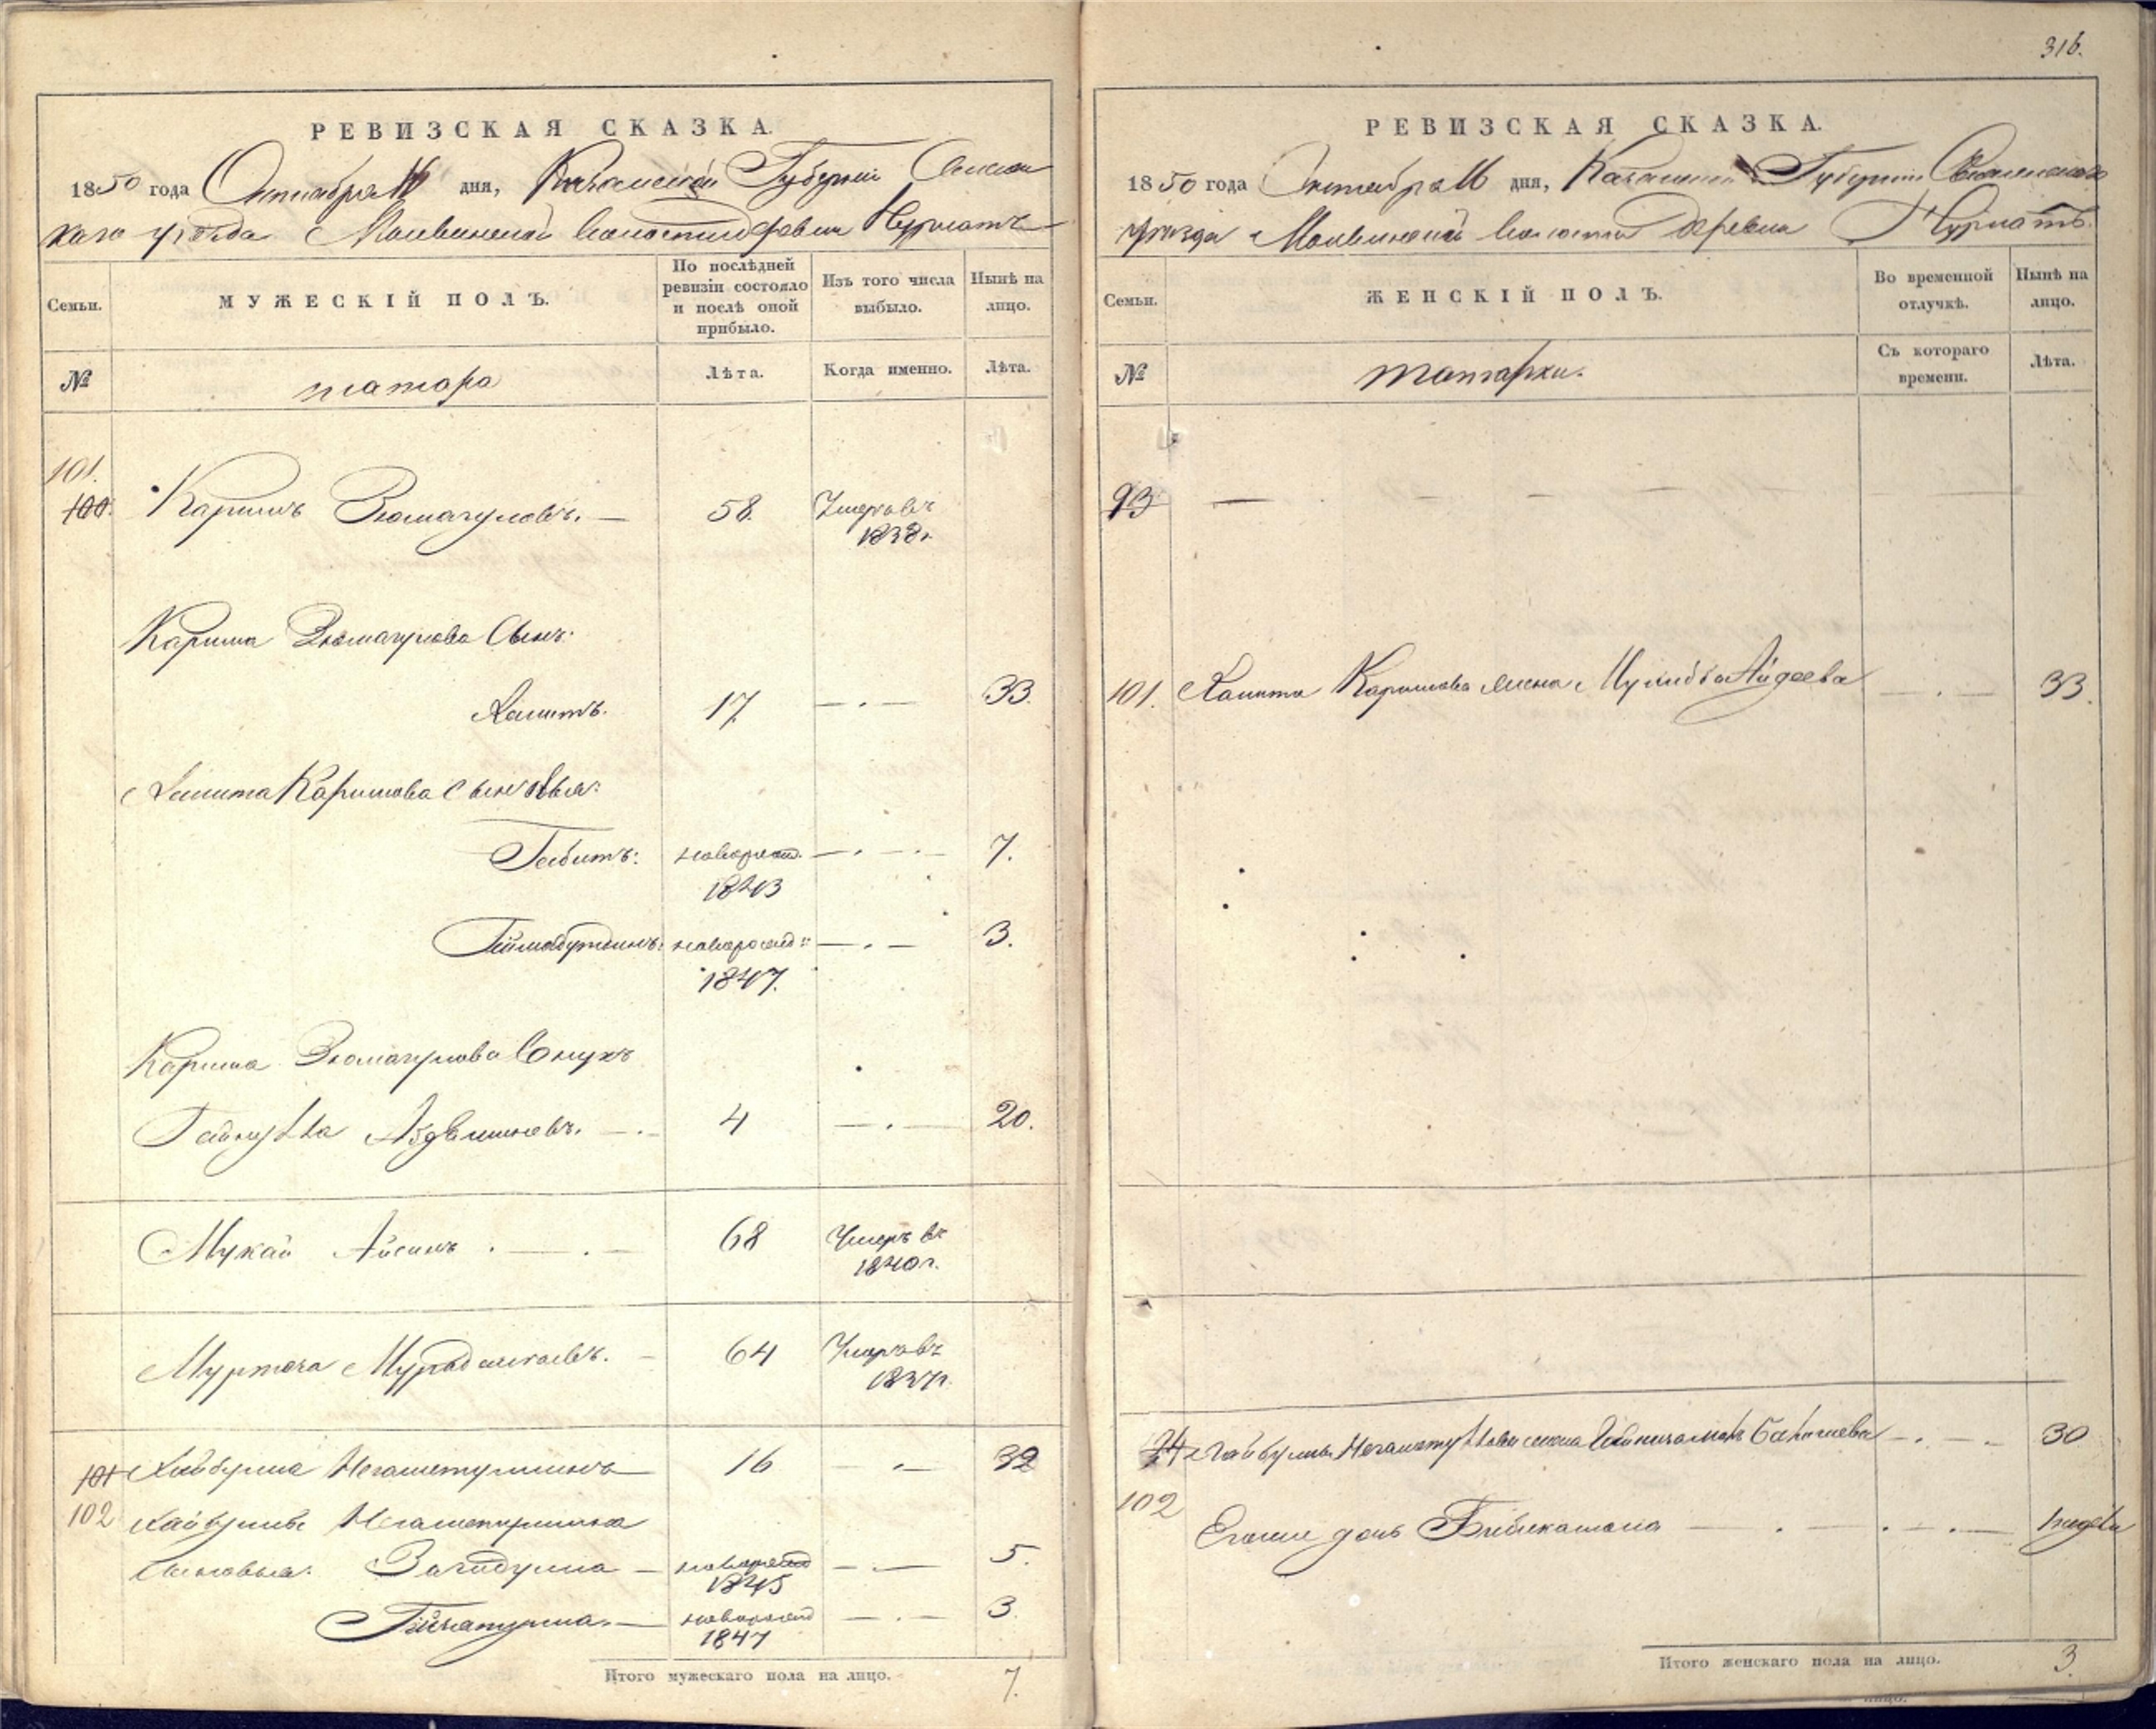 316.
РЕВИЗСКАЯ СКАЗКА.
1850 года Октября 16 дня, Казанской Губернии Свияж
скаго уезда Молвинской волости деревни Нурлатъ
Семьи.
МУЖЕСКІЙ ПОЛЪ.
По послѣдней ревизіи состояло и послѣ оной прибыло.
Изъ того числа выбыло.
Нынѣ на лицо.
№
татара
Лѣта.
Когда именно.
Лѣта.
101.
100. Каримъ Зюмагуловъ. — 58. Умеръ въ
1838 г.
Карима Зюмагулова Сынъ:
Хамитъ. 17. — . — 33.
Хамита Каримова сыновья:
Габитъ: новорожд. — . — . — 7.
1843
новорожд: — . — 3.
1847.
Карима Зюмагулова Внукъ
4 — . — 20.
Мукай Айсинъ . — . — 68 Умеръ въ
1840 г.
Муртаза — 64 Умеръ въ
1837 г.
101 Хайбулла Негаметуллинъ 16 — . — 32
102 Хайбуллы Негаметуллина
Сыновья: Загидулла — новорожд — . — 5.
1845
— новорожд — . — 3.
1847
Итого мужескаго пола на лицо. 7.
РЕВИЗСКАЯ СКАЗКА.
1850 года Октября 16 дня, Казанской Губернии Свияжскаго
уезда Молвинской волости деревни Нурлатъ.
Семьи.
ЖЕНСКІЙ ПОЛЪ.
Во временной отлучкѣ.
Нынѣ на лицо.
№
татарки.
Съ котораго времени.
Лѣта.
93 — — — — —
101. Хамита Каримова жена Айдеева — . — 33.
94 Хайбуллы Негаметуллова жена — . — . 30
102
Егоже дочь Бибикамала — . — . — . — недели
Итого женскаго пола на лицо. 3.